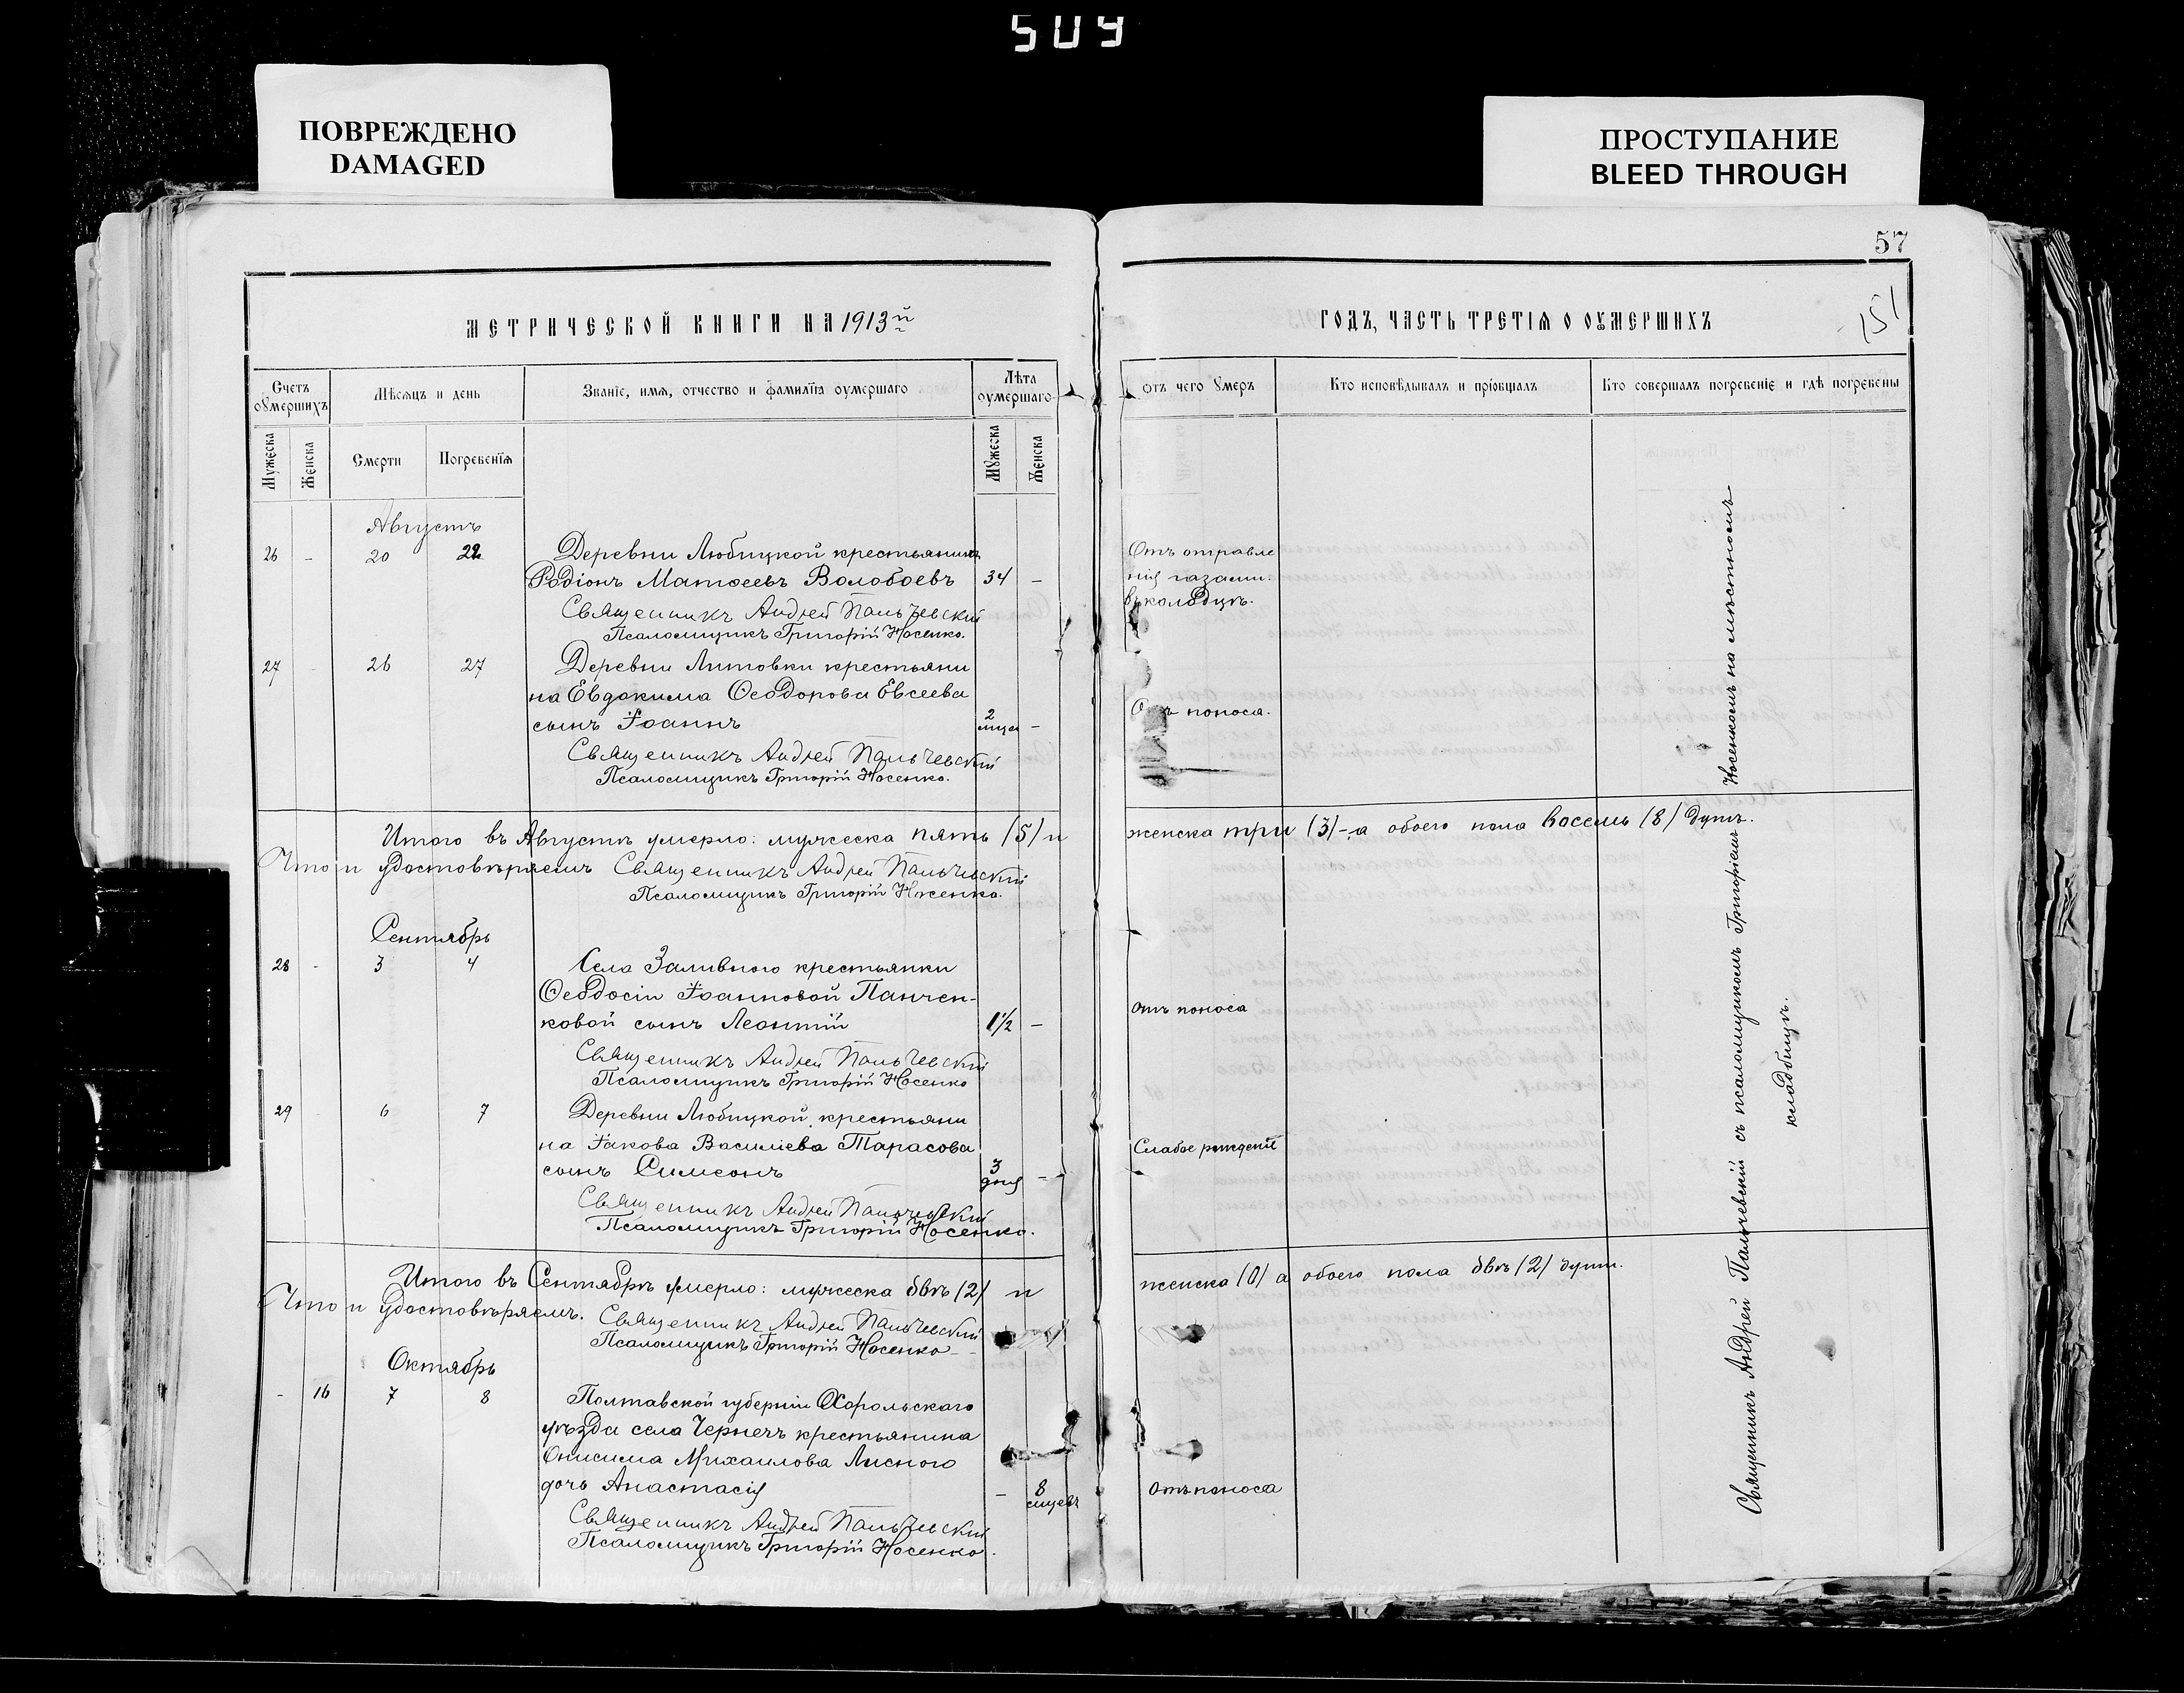 509
ПОВРЕЖДЕНО
DAMAGED
ПРОСТУПАНИЕ
BLEED THROUGH
57
151
МЕТРИЧЕСКОЙ КНИГИ НА 1913й
ГОДЪ, ЧАСТЬ ТРЕТІЯ О ОУМЕРШИХЪ
Счетъ оумершихъ
Мѣсяцъ и день
Званіе, имя, отчество и фамилія оумершаго
Лѣта оумершаго
Отъ чего умеръ
Кто исповѣдывалъ и пріобщалъ
Кто совершалъ погребеніе и гдѣ погребены
Мужеска
Женска
Смерти
Погребенія
Мужеска
Женска
Августъ
26 - 20 22 Деревни Любицкой крестьянинъ
Родіонъ Матѳеевъ Волобоевъ 34 -
Отъ отравле
нія газами.
въ колодцѣ.
Священникъ Андрей Пальчевскій
Псаломщикъ Григорій Носенко.
27 - 26 27 Деревни Литовки крестьяни
на Евдокима Ѳеодорова Евсеева
сынъ Іоаннъ 2 мцса -
Отъ поноса.
Священникъ Андрей Пальчевскій
Псаломщикъ Григорій Носенко.
Итого въ Августѣ умерло: мужеска пять (5) и женска три (3)-, а обоего пола восемь (8) душъ.
Что и удостовѣряемъ Священникъ Андрей Пальчевскій
Псаломщикъ Григорій Носенко.
Сентябрь
28 - 3 4 Села Заливного крестьянки
Ѳеодосіи Іоанновой Панчен-
ковой сынъ Леонтій 1½ -
Отъ поноса
Священникъ Андрей Пальчевскій
Псаломщикъ Григорій Носенко
29 6 7 Деревни Любицкой крестьяни
на Іакова Василіева Тарасова
сынъ Симеонъ 3 дня -
Слабое рожденіе
Священникъ Андрей Пальчевскій
Псаломщикъ Григорій Носенко.
Итого въ Сентябрѣ умерло: мужеска двѣ (2) и женска (0) а обоего пола двѣ (2) души.
Что и удостовѣряемъ. Священникъ Андрей Пальчевскій
Псаломщикъ Григорій Носенко
Октябрь
- 16 7 8 Полтавской губерніи Хорольскаго
уѣзда села Чернечь крестьянина
Онисима Михаилова Лисного
дочь Анастасія - 8 мцевъ
Отъ поноса
Священникъ Андрей Пальчевскій
Псаломщикъ Григорій Носенко.
Священникъ Андрей Пальчевскій съ псаломщикомъ Григоріемъ Носенкомъ на мѣстномъ
кладбищѣ.